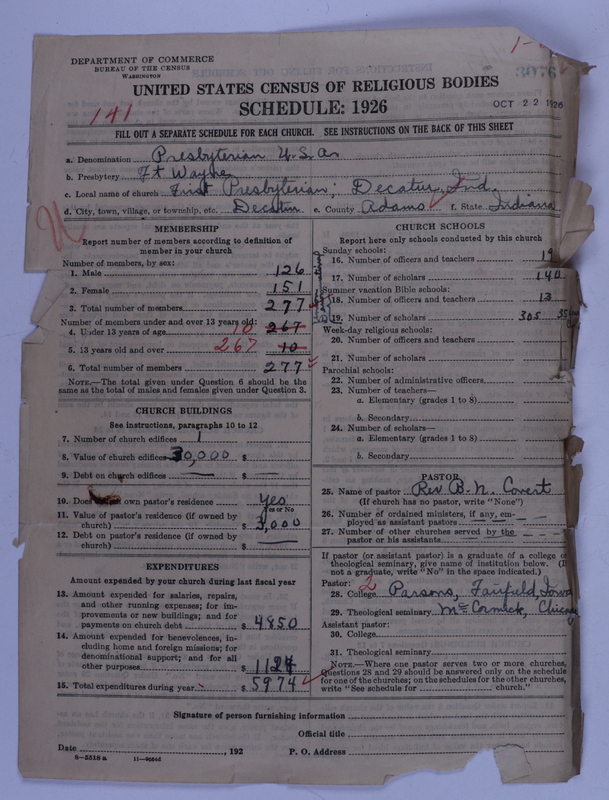 DEPARTMENT OF COMMERCE
BUREAU OF THE CENSUS
WASHINGTON
UNITED STATES CENSUS OF RELIGIOUS BODIES
SCHEDULE: 1926
OCT 22 1926
141
FILL OUT A SEPARATE SCHEDULE FOR EACH CHURCH. SEE INSTRUCTIONS ON THE BACK OF THIS SHEET
a. Denomination Presbyterian U.S.A.
b. Presbytery Ft Wayne
c. Local name of church First Presbyterian; Decatur, Ind.
d. City, town, village, or township, etc. Decatur e. County Adams f. State Indiana
MEMBERSHIP
Report number of members according to definition of
member in your church
Number of members, by sex:
1. Male 126
2. Female 151
3. Total number of members 277
Number of members under and over 13 years old:
4. Under 13 years of age 10 267
5. 13 years old and over 267 10
6. Total number of members 277
NOTE.—The total given under Question 6 should be the
same as the total of males and females given under Question 3.
CHURCH BUILDINGS
See instructions, paragraphs 10 to 12
7. Number of church edifices 1
8. Value of church edifices $ 30,000
9. Debt on church edifices — $ —
10. Does own pastor's residence Yes
Yes or No
11. Value of pastor's residence (if owned by
church) $ 3,000
12. Debt on pastor's residence (if owned by
church) $ —
EXPENDITURES
Amount expended by your church during last fiscal year
13. Amount expended for salaries, repairs,
and other running expenses; for im-
provements or new buildings; and for
payments on church debt $ 4850
14. Amount expended for benevolences, in-
cluding home and foreign missions; for
denominational support; and for all
other purposes $ 1124
15. Total expenditures during year $ 5974
CHURCH SCHOOLS
Report here only schools conducted by this church
Sunday schools:
16. Number of officers and teachers 19
17. Number of scholars 140
Summer vacation Bible schools:
18. Number of officers and teachers 13
19. Number of scholars 305
Week-day religious schools:
20. Number of officers and teachers
21. Number of scholars
Parochial schools:
22. Number of administrative officers
23. Number of teachers—
a. Elementary (grades 1 to 8)
b. Secondary
24. Number of scholars—
a. Elementary (grades 1 to 8)
b. Secondary
PASTOR
25. Name of pastor Rev B. N. Covert
(If church has no pastor, write "None")
26. Number of ordained ministers, if any, em-
ployed as assistant pastors — — —
27. Number of other churches served by the
pastor or his assistants — — —
If pastor (or assistant pastor) is a graduate of a college or
theological seminary, give name of institution below. (If
not a graduate, write "No" in the space indicated.)
Pastor: 2
28. College Parsons, Fairfield, Iowa
29. Theological seminary McCormick, Chicago
Assistant pastor:
30. College
31. Theological seminary
NOTE.—Where one pastor serves two or more churches,
Questions 28 and 29 should be answered only on the schedule
for one of the churches; on the schedules for the other churches,
write "See schedule for church."
Signature of person furnishing information
Official title
Date , 192 P. O. Address
8-2518a